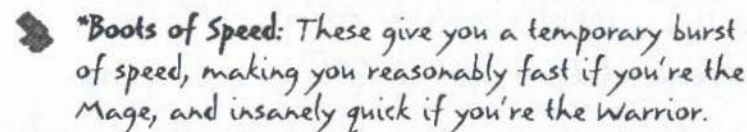 *Boots of Speed: These give you a temporary burst
of speed, making you reasonably fast if you're the
Mage, and insanely quick if you're the Warrior.